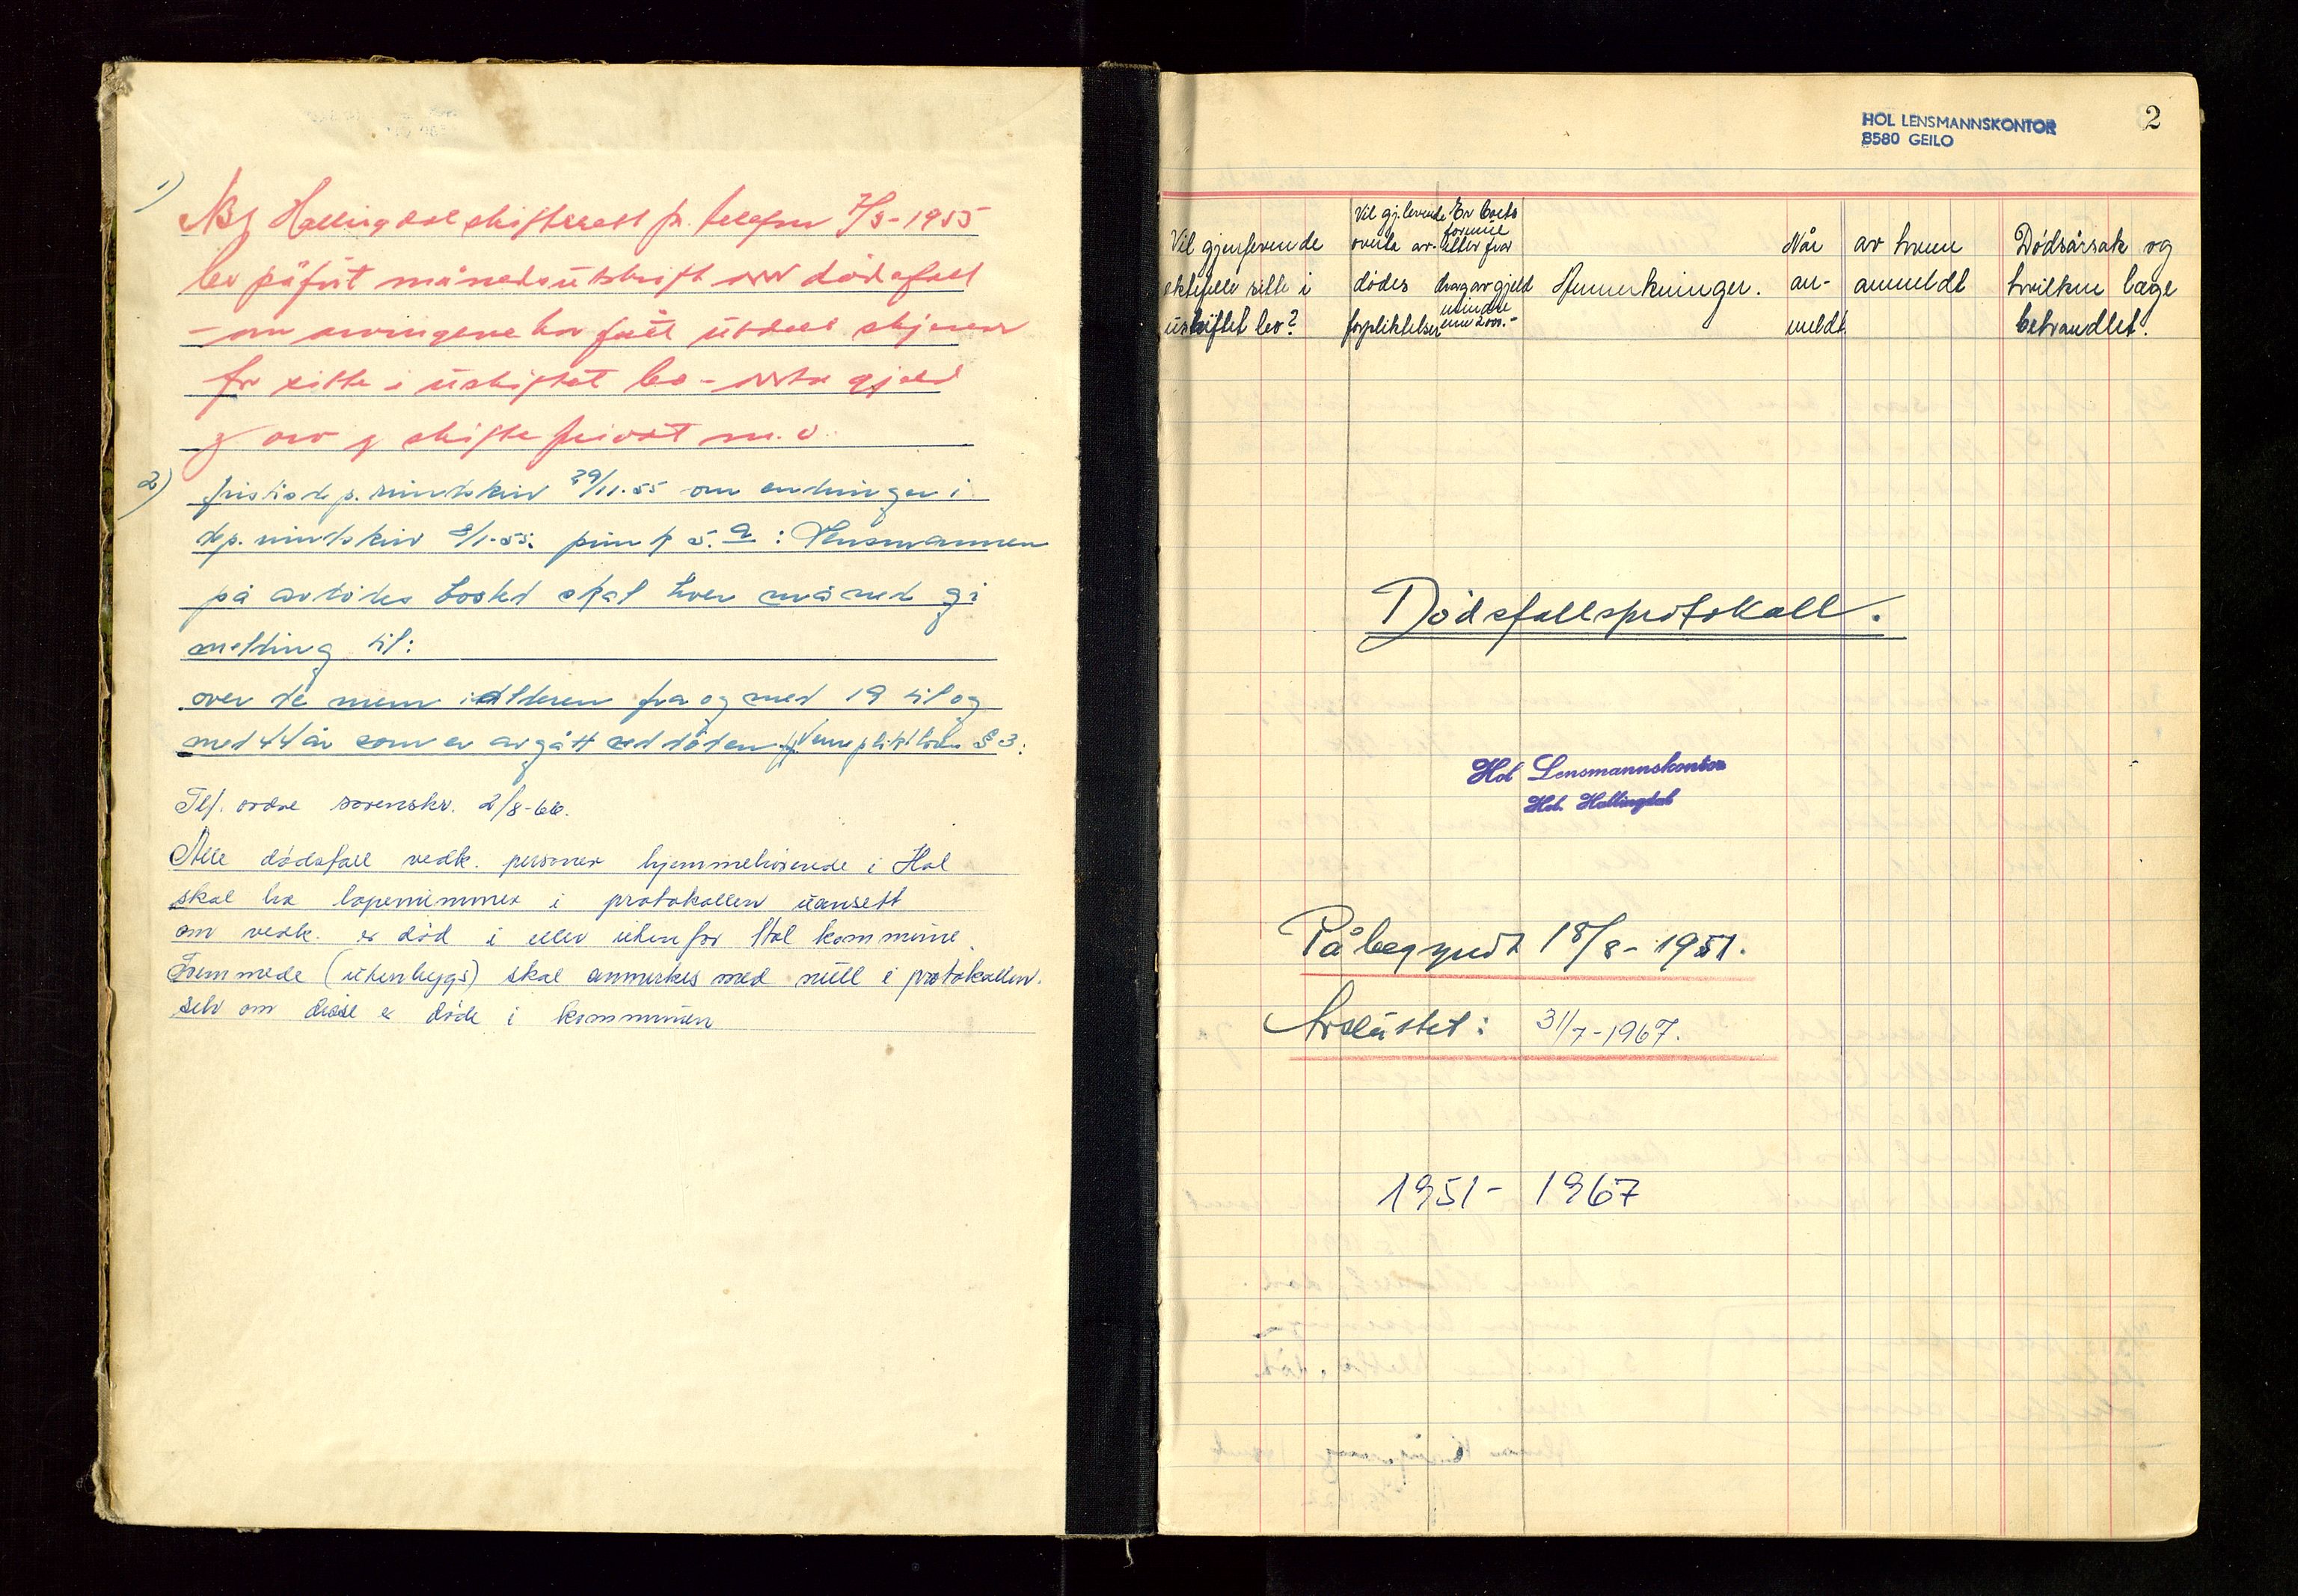 1) NB! Hallingdal skifterett pr. telefon 7/3-1955
bes påført månedsutskrift over dødsfall
- om arvingene har fått utdelt skjema
for sitte i uskiftet bo - overta gjeld
og arv og skifte privat m.v.
2) Justisdep. rundskriv 29/11.55 om endringer i
dep. rundskriv 8/1-55: punkt 5. a : Lensmannen
på avdødes bosted skal hver måned gi
melding til:
over de menn i alderen fra og med 19 til og
med 44 år som er avgått ved døden jf. Vernepliktsloven § 3:
Tlf. ordre sorenskr. 2/8-66.
Alle dødsfall vedk. personer hjemmehørende i Hol
skal ha løpenummer i protokollen uansett
om vedk. er død i eller utenfor Hol kommune.
Fremmede (utenbygs) skal anmerkes med null i protokollen.
selv om disse er døde i kommunen
HOL LENSMANNSKONTOR
3580 GEILO
2
Vil gjenlevende
ektefelle sitte i
uskiftet bo?
Vil gj.levende
overta av-
dødes
forpliktelser
Er boets
formue
etter fra-
drag av gjeld
mindre
enn 2000.-
Anmerkninger.
Når
an-
meldt
av hvem
anmeldt
Dødsårsak og
hvilken læge
behandlet.
Dødsfallsprotokoll.
Hol Lensmannskontor
Hol. Hallingdal
Påbegyndt 18/8-1951.
Avsluttet: 31/7-1967.
1951- 1967